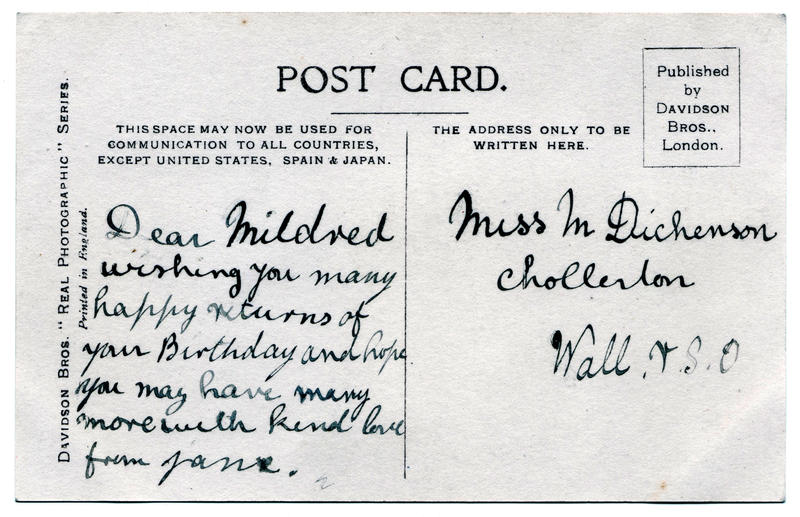 POST CARD.
Published
by
DAVIDSON
BROS.,
London.
THIS SPACE MAY NOW BE USED FOR
COMMUNICATION TO ALL COUNTRIES,
EXCEPT UNITED STATES, SPAIN & JAPAN.
THE ADDRESS ONLY TO BE
WRITTEN HERE.
DAVIDSON BROS. "REAL PHOTOGRAPHIC" SERIES.
Printed in England.
Dear Mildred
wishing you many
happy returns of
your Birthday and hope
you may have many
more with kind love
from Jane.
Miss M Dickenson
Chollerton
Wall. R.S.O